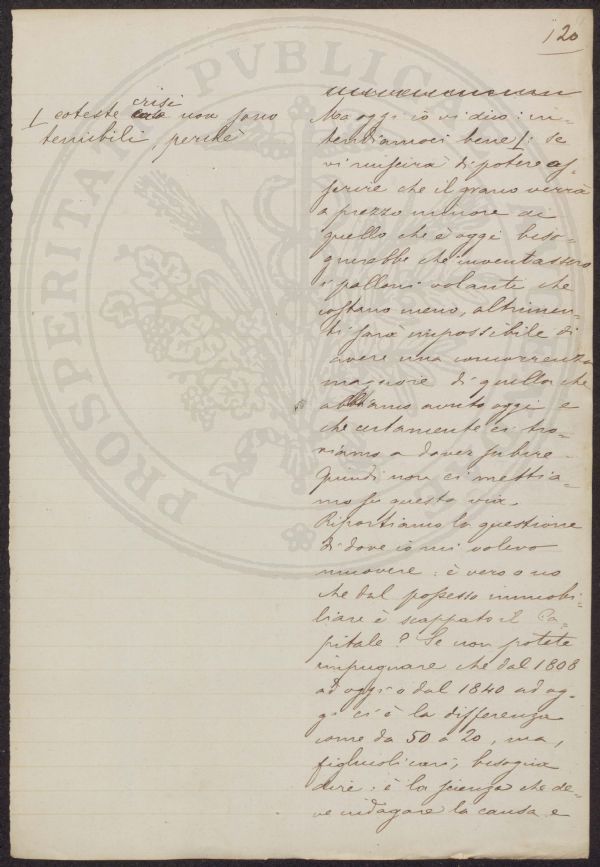 120
⌊ coteste crisi non sono
temibili, perchè
Ma oggi io vi dico: in-
tendiamoci bene ⌊: se
vi riuscirà di potere as-
serire che il grano verrà
a prezzo minore di
quello che è oggi biso-
gnerebbe che inventassero
i palloni volanti che
costano meno, altrimen-
ti sarà impossibile di
avere una concorrenza
maggiore di quella che
abbiamo avuto oggi e
che certamente ci tro-
viamo a dover subire.
Quindi non ci mettia-
mo su questa via.
Riportiamo la questione
di dove io mi volevo
muovere: è vero o no
che dal possesso immobi-
liare è scappato il Ca-
pitale? Se non potete
impugnare che dal 1808
ad oggi o dal 1840 ad og-
gi ci è la differenza
come da 50 a 20, ma,
figliuoli cari, bisogna
dire: è la scienza che de-
ve indagare la causa e
PROSPERITAS PVBLICA